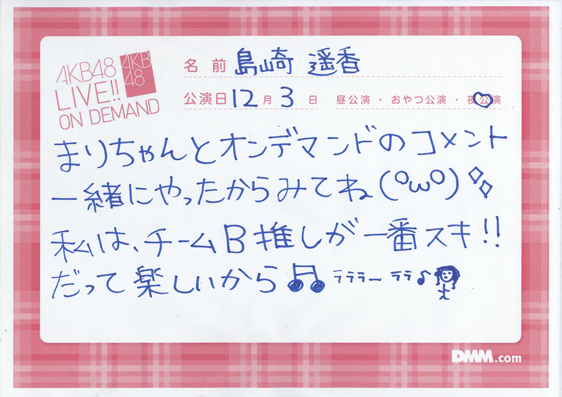 AKB48
LIVE!!
ON DEMAND
AKB
48
名前 島崎 遥香
公演日 12月 3日 昼公演・おやつ公演・夜公演
まりちゃんとオンデマンドのコメント
一緒にやったからみてね(^ω^)
私は、チームB推しが一番スキ!!
だって楽しいから♫ ラララー ララ♪
DMM.com